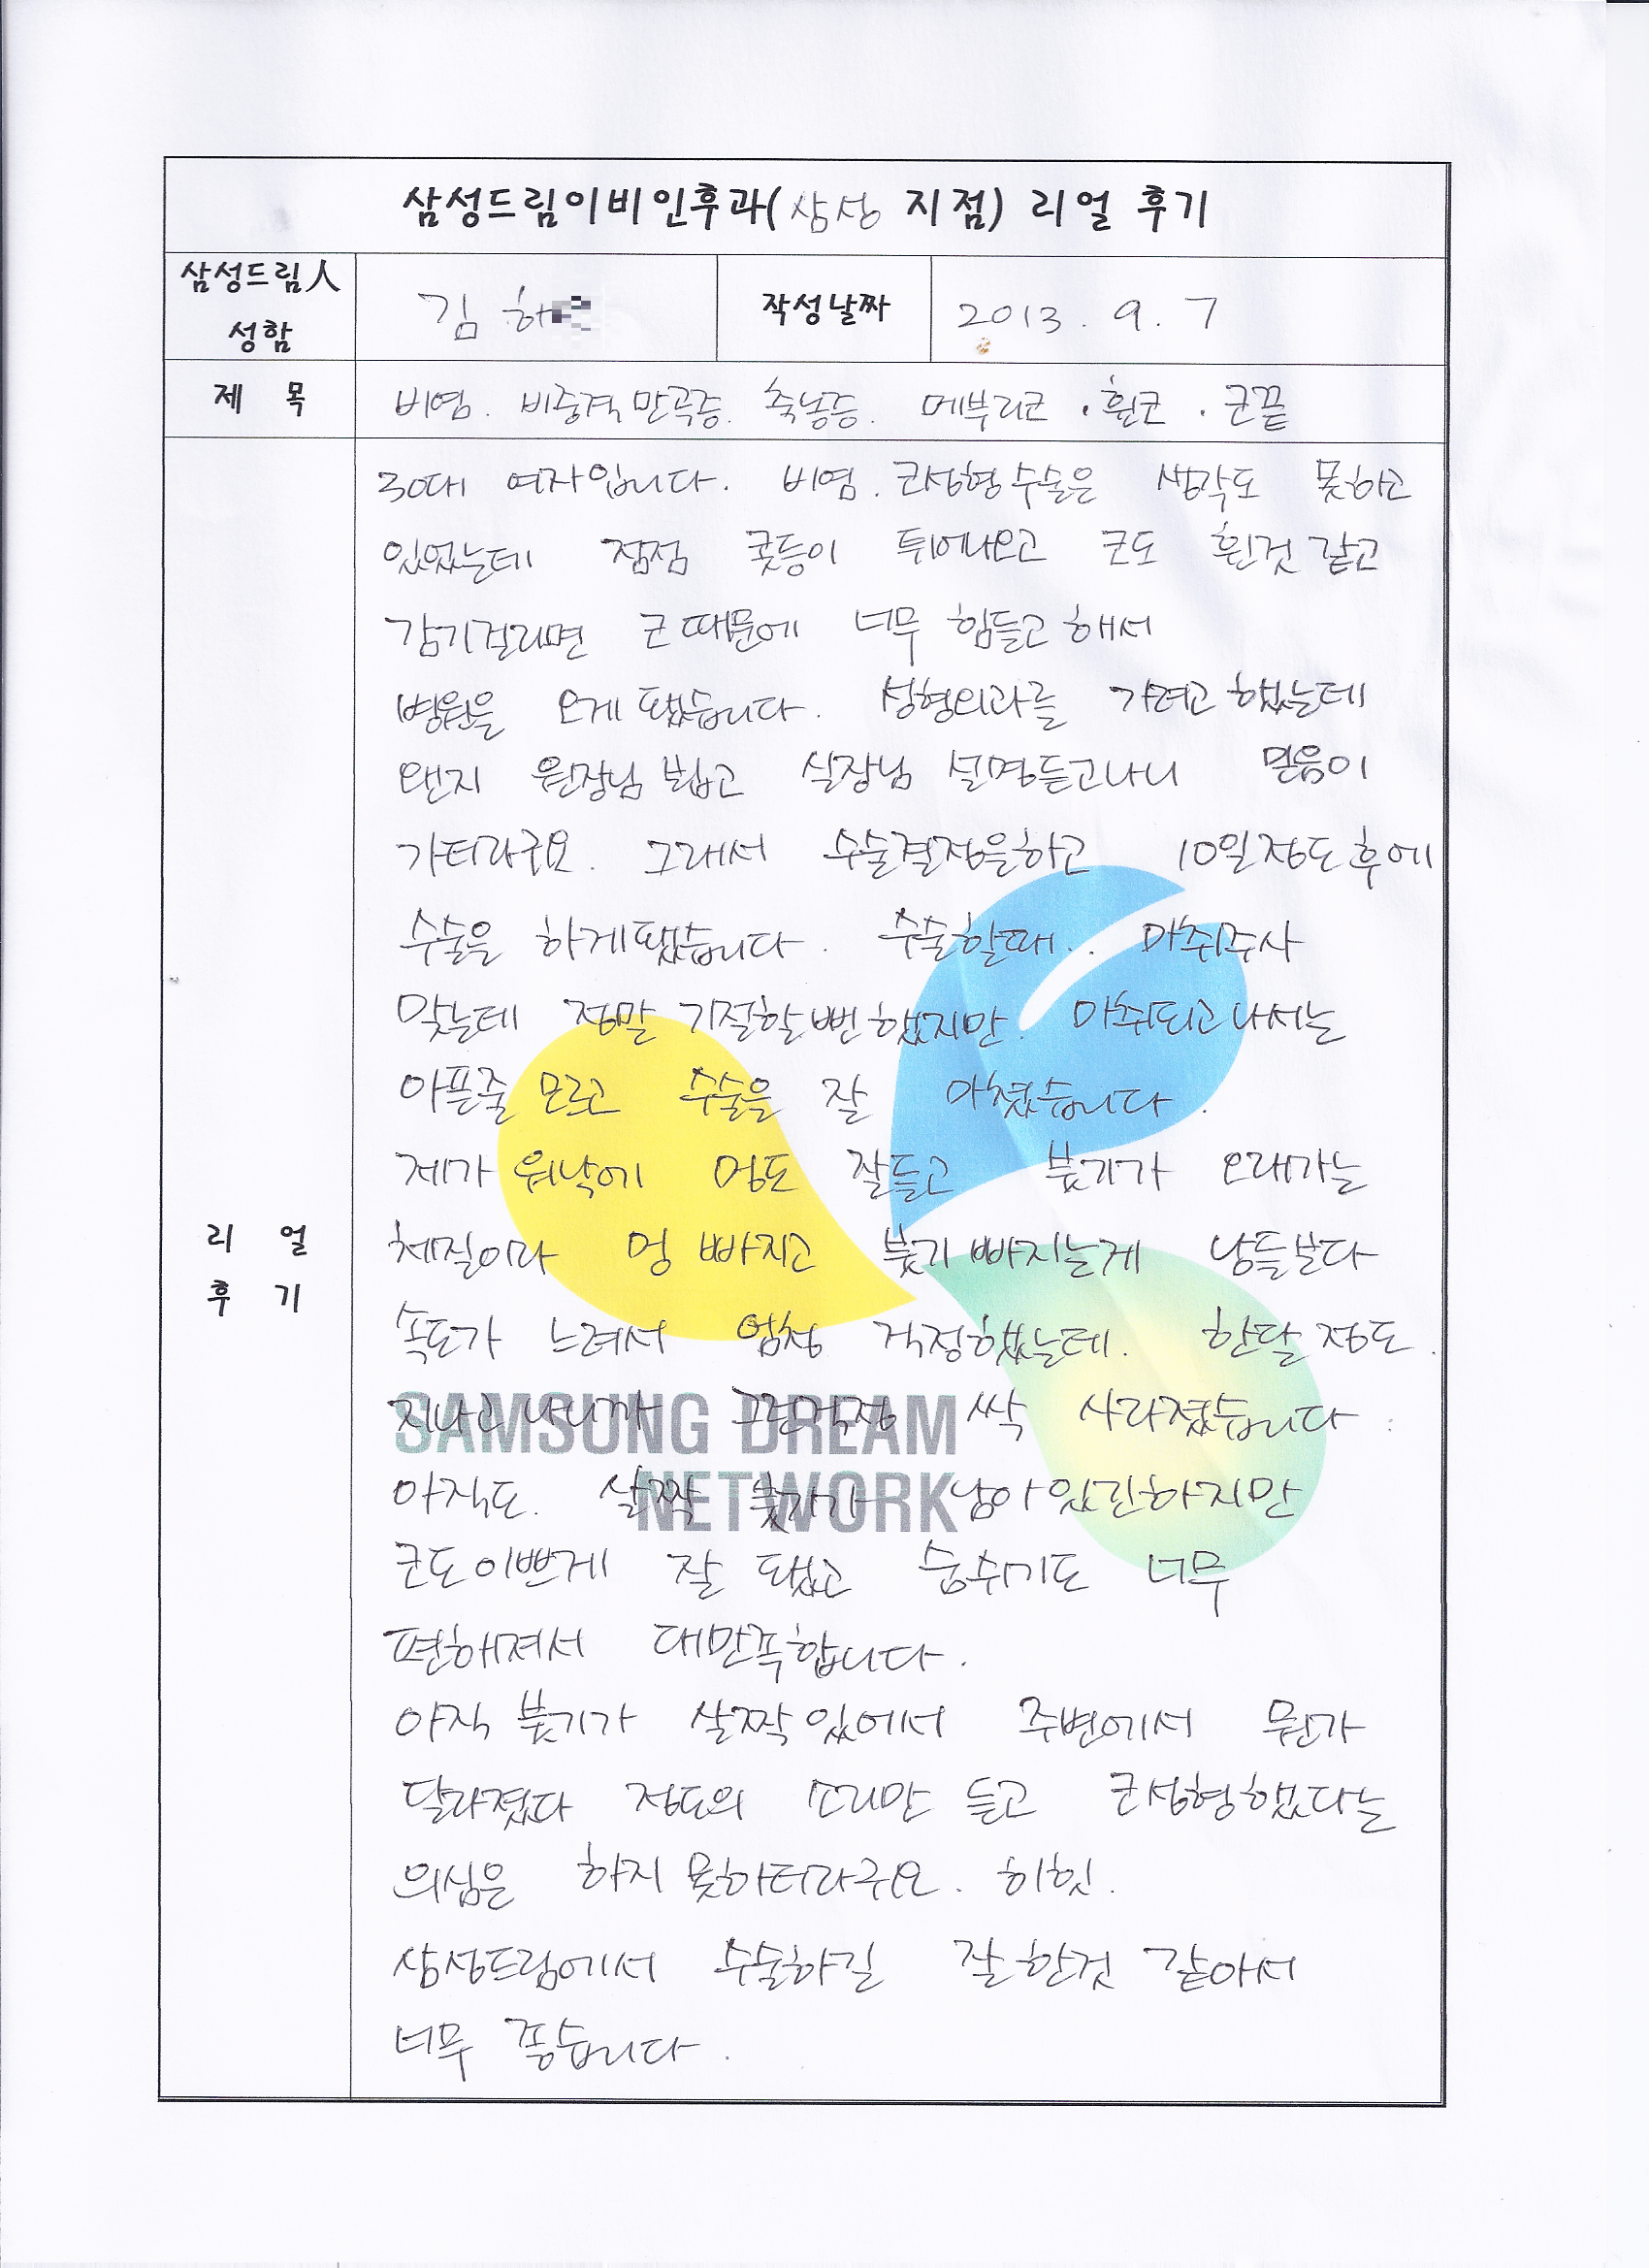 삼성드림이비인후과(삼성 지점) 리얼 후기
삼성드림人
성함
김 해
작성날짜
2013. 9. 7
제 목
비염. 비중격만곡증. 축농증. 메부리코 · 휜코 · 코끝
30대 여자입니다. 비염. 코성형수술은 생각도 못하고
있었는데 점점 콧등이 튀어나오고 코도 휜것 같고
감기걸리면 코 때문에 너무 힘들고 해서
병원을 오게 됐습니다. 성형외과를 가려고 했는데
왠지 원장님 뵙고 실장님 설명듣고나니 믿음이
가더라구요. 그래서 수술결정을하고 10일정도 후에
수술을 하게됐습니다. 수술할때.. 마취주사
맞는데 정말 기절할뻔 했지만. 마취되고 나서는
아픈줄 모르고 수술을 잘 마쳤습니다.
제가 워낙에 멍도 잘들고 붓기가 오래가는
체질이라 멍 빠지고 붓기 빠지는게 남들보다
속도가 느려서 엄청 걱정했는데. 한달 정도.
지나고 나니까 그런걱정 싹 사라졌습니다.
아직도. 살짝 붓기가 남아 있긴하지만
코도 이쁘게 잘 됐고 숨쉬기도 너무
편해져서 대만족합니다.
아직 붓기가 살짝 있에서 주변에서 뭔가
달라졌다 정도의 소리만 듣고 코성형했다는
의심은 하지 못하더라구요. 히힛.
삼성드림에서 수술하길 잘 한것 같아서
너무 좋습니다.
리 얼
후 기
SAMSUNG DREAM
NETWORK